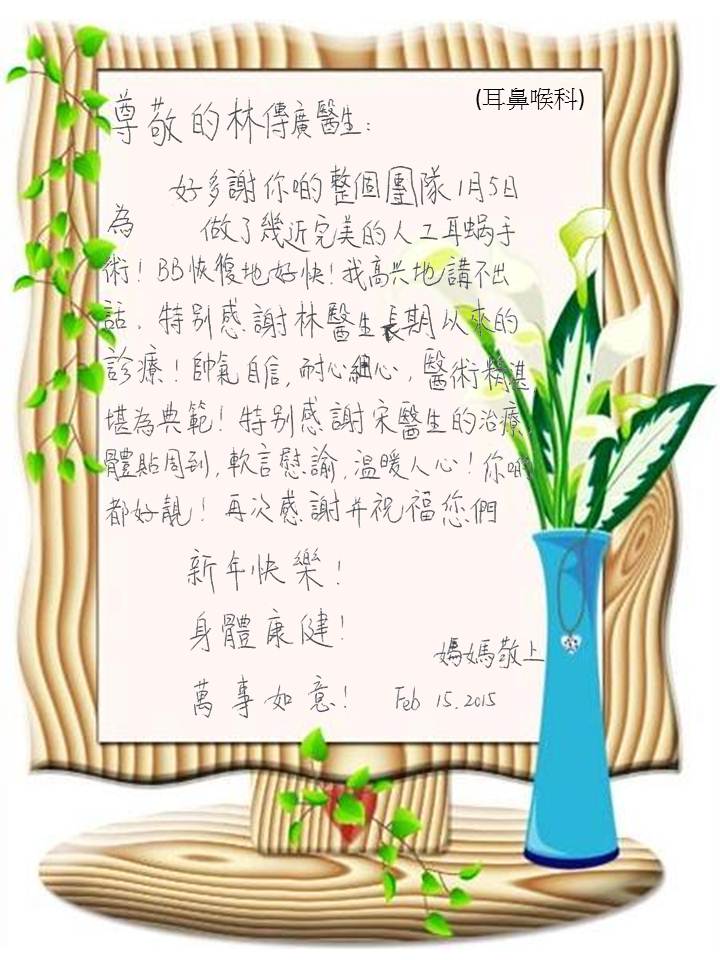 (耳鼻喉科)
尊敬的林傳廣醫生:
好多謝你啲整個團隊1月5日
為 做了幾近完美的人工耳蝸手
術! BB恢復地好快!我高兴地講不出
話. 特别感謝林醫生長期以來的
診療!帥氣自信,耐心細心,醫術精湛
堪為典範!特别感謝宋醫生的治療,
體貼周到,軟言慰諭,温暖人心!你啲
都好靚!再次感謝并祝福您們
新年快樂!
身體康健!
媽媽敬上
萬事如意! Feb 15.2015